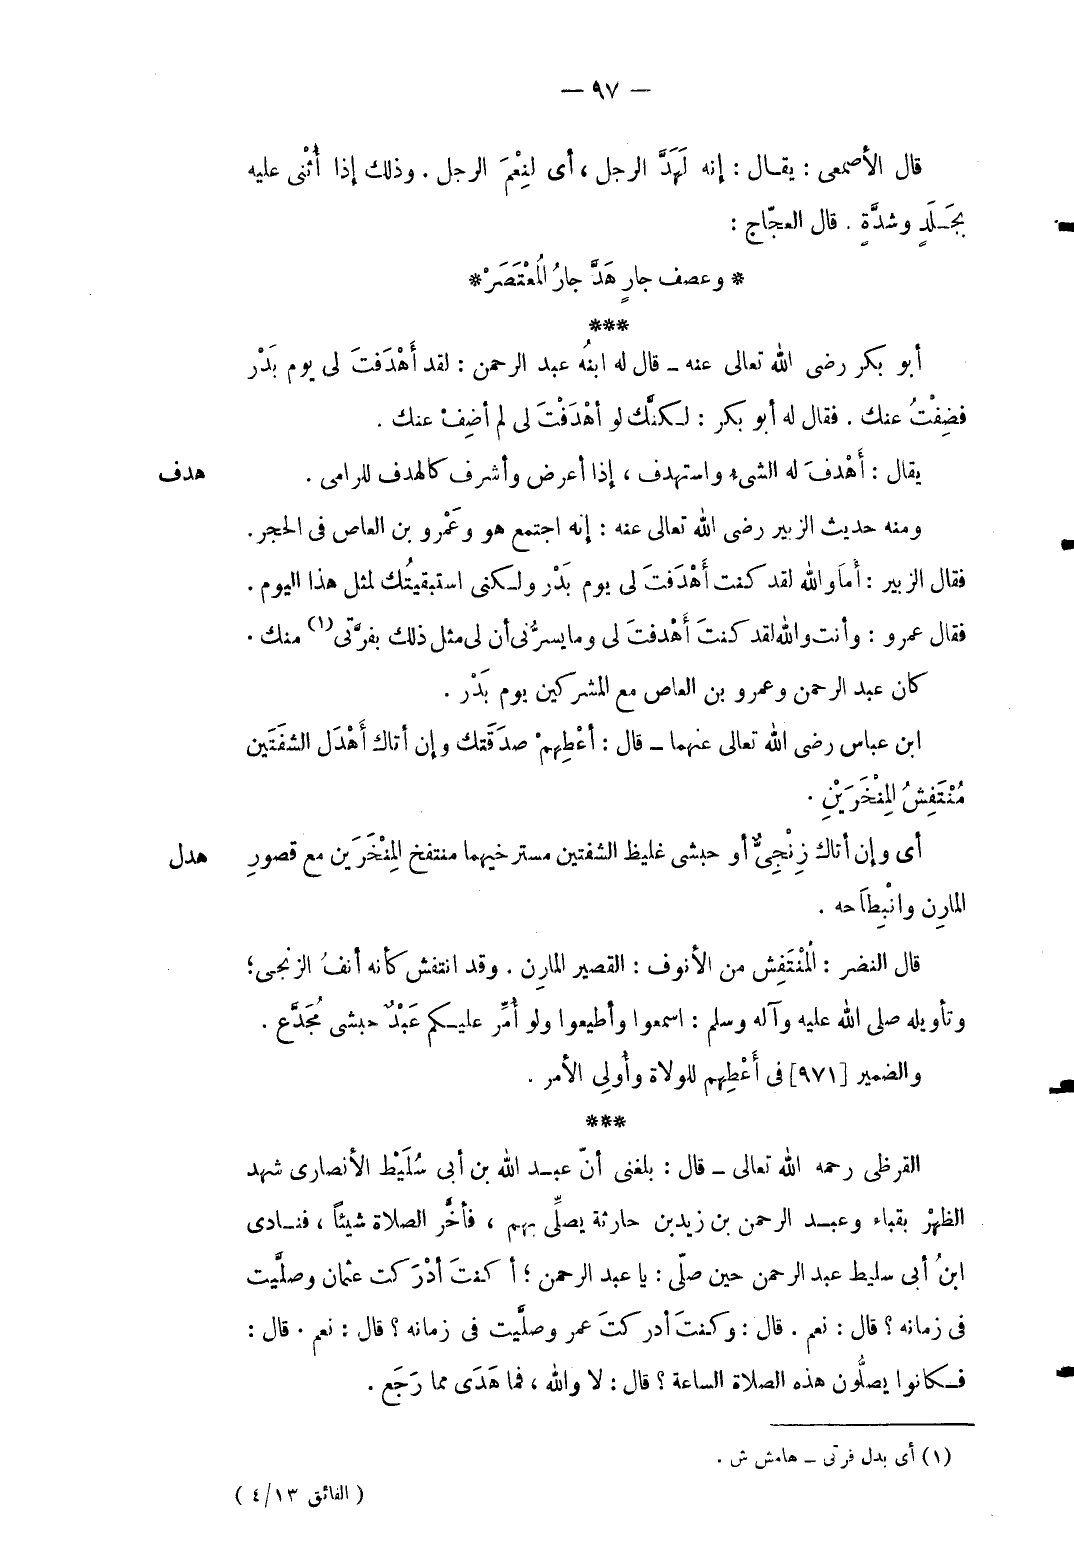 — ٩٧ —
قال الأصمعى : يقال : إنه لَهَدَّ الرجل ، أى لنِعْمَ الرجل . وذلك إذا أُثنى عليه
بجَلَدٍ وشدَّةٍ . قال العجّاج :
* وعصف جارٍ هَدَّ جارُ المُعْتَصَرْ *
***
أبو بكر رضى الله تعالى عنه – قال له ابنُه عبد الرحمن : لقد أَهْدَفتَ لى يوم بَدْر
فضِفْتُ عنك . فقال له أبو بكر : لكنَّك لو أهْدَفْتَ لى لم أضِفْ عنك .
يقال : أَهْدفَ له الشىء واستهدف ، إذا أعرض وأشرف كالهدف للرامى . هدف
ومنه حديث الزبير رضى الله تعالى عنه : إنه اجتمع هو وعَمْرو بن العاص فى الحجر .
فقال الزبير : أمَا والله لقد كنت أَهْدَفتَ لى يوم بَدْر ولكنى استبقيتُك لمثل هذا اليوم .
فقال عمرو : وأنت والله لقد كنتَ أَهْدفتَ لى وما يسرُّنى أن لى مثل ذلك بفرَّتى(١) منك .
كان عبد الرحمن وعمرو بن العاص مع المشركين يوم بَدْر .
ابن عباس رضى الله تعالى عنهما – قال : أعْطِهمْ صدَقَتك وإن أتاك أَهْدَل الشفَتَين
مُنْتَفِشُ المِنْخَرَيْنِ .
أى وإن أتاك زِنْجِىٌّ أو حبشى غليظ الشفتين مسترخيهما منتفخ المِنْخَرَين مع قصورِ هدل
المارِن وانْبِطاحه .
قال النضر : المُنْتَفِش من الأنوف : القصير المارِن . وقد انتفش كأنه أنفُ الزنجى ؛
وتأويله صلى الله عليه وآله وسلم : اسمعوا وأطيعوا ولو أُمِّر عليكم عَبْدٌ حبشى مُجَدَّع .
والضمير [٩٧١] فى أَعْطِهم للولاة وأُولِى الأمر .
***
القرظى رحمه الله تعالى – قال : بلغنى أنّ عبد الله بن أبى سُلَيْط الأنصارى شهد
الظهْر بقباء وعبد الرحمن بن زيد بن حارثة يصلِّى بهم ، فأخَّر الصلاة شيئاً ، فنادى
ابنُ أبى سليط عبد الرحمن حين صلّى : يا عبد الرحمن ؛ أكنتَ أدْرَكت عثمان وصلَّيت
فى زمانه ؟ قال : نعم . قال : وكنتَ أدركتَ عمر وصلَّيت فى زمانه ؟ قال : نعم . قال :
فكانوا يصلُّون هذه الصلاة الساعة ؟ قال : لا والله ، فما هَدَى مما رَجَع .
(١) أى بدل فرتى – هامش ش .
( الفائق ٤/١٣ )